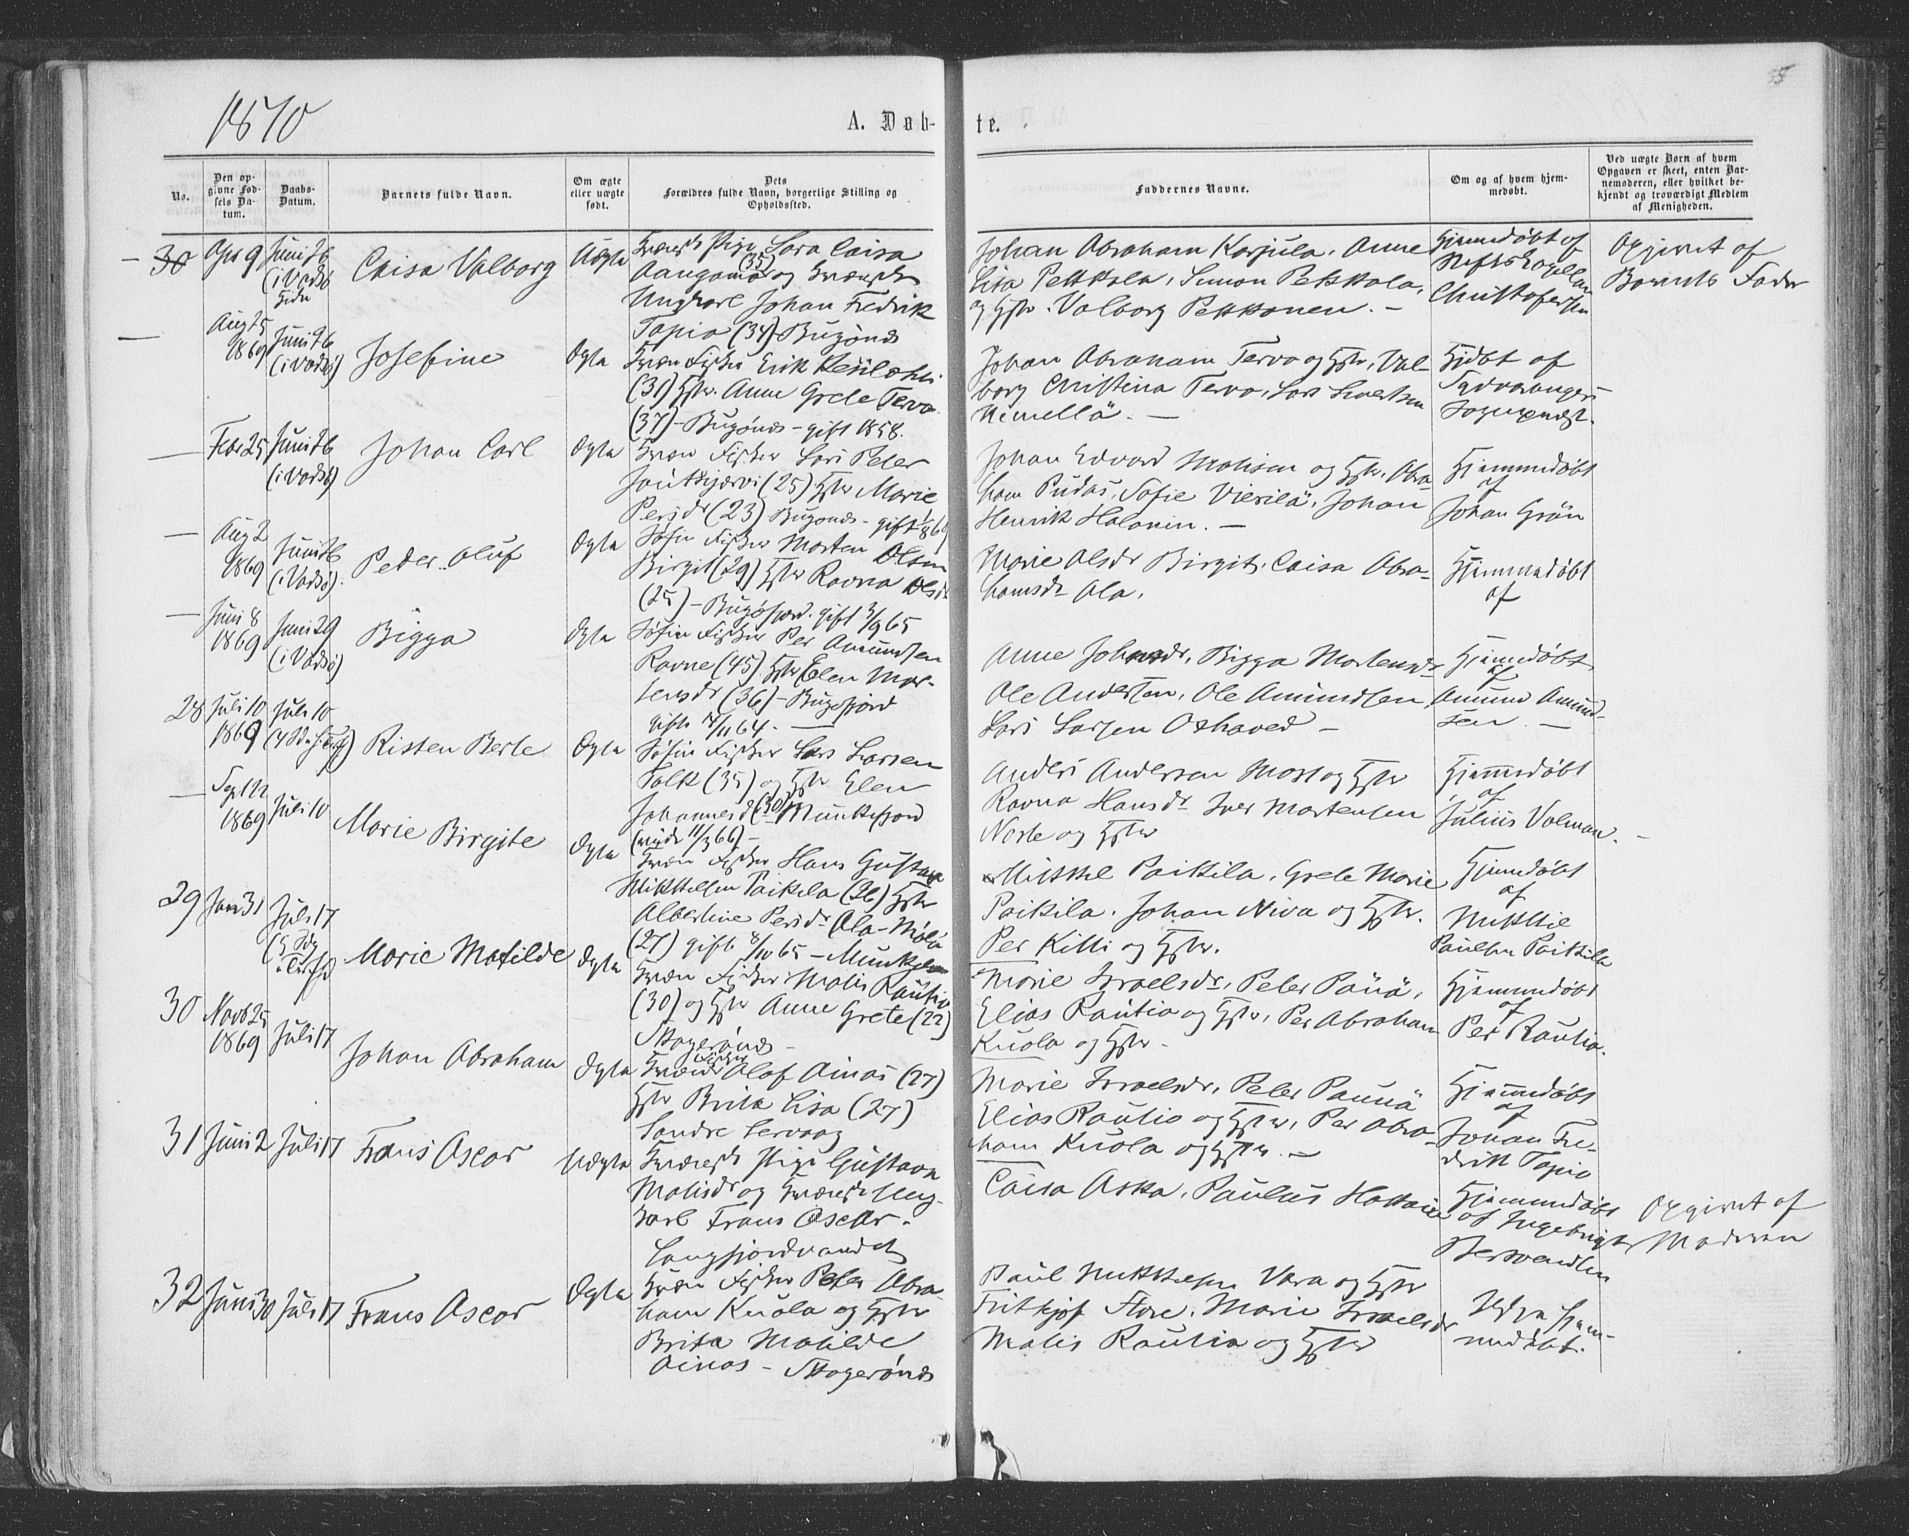 1870
A. Døb-
te.
35
No.
Den op-
givne Fød-
sels Da-
tum.
Daabs-
Datum.
Barnets fulde Navn.
Om ægte
eller uægte
født.
Dets
Forældres fulde Navn, borgerlige Stilling og
Opholdssted.
Faddernes Navne.
Om og af hvem hjem-
medøbt.
Ved uægte Børn af hvem
Opgaven er skeet, enten Bar-
nemoderen, eller hvilket be-
kjendt og troværdigt Medlem
af Menigheden.
— 30
Apr 9
Juni 26
(i Vadsø
Kirke
Caisa Valborg
Uægte
Kvænsk Pige Lara Caisa
(35)
og Kvænsk
Ungkarl Johan Fredrik
Tapio (34) Bugønæs
Johan Abraham Karjula, Anne
Lisa Pekkala, Simon Pekkala,
og Hstr. Valborg Pekkonen. —
Hjemmedøbt af
Stiftskapellan
Christofersen
Opgivet af
Barnets Fader
—
Aug 25
1869
Juni 26
(i Vadsø)
Josefine
Ægte
Kvæn Fisker Erik Kesilæhti
(31) Hstr. Anne Grete Tervo
(37) – Bugønæs – gift 1858.
Johan Abraham Tervo og Hstr, Val-
borg Christina Tervo, Lars
Niemellä. —
Hjdbt af
Sydvaranger
Sognepræst.
—
Febr 25
Juni 26
(i Vadsø)
Johan Carl
Ægte
Kvæn Fisker Lars Peter
(25) Hstr Marie
Persdr (23) Bugønæs – gift 1869
Johan Edvard Matisen og Hstr. Abra-
ham Pudas, Sofie Vierilä, Johan
Henrik Halonin. —
Hjemmedøbt
af
Johan Grön
—
Aug 2
1869
Juni 26
(i Vadsø).
Peder Oluf
Ægte
Søfin Fisker Morten Olsen
Birgit (29) Hstr Ravna Olsdr
(25) – Bugøfjord. gift 3/9 65
Marie Olsdr Birgit, Caisa Abra-
hamsdr Ala.
Hjemmedøbt
af
—
Juni 8
1869
Juni 29
(i Vadsø)
Bigga
Ægte
Søfin Fisker Per Amundsen
Ravne (45) Hstr Elen Mor-
tensdr (36) – Bugøfjord
gift 18/11 64. —
Anne Johnsdr, Bigga Mortensdr
Ole Andersen, Ole Amundsen,
Lars Larsen Oshaved —
Hjemmedøbt
af
Amund Amund-
sen —
28
Juli 10
1869
Juli 10
Risten Berte
Ægte
Søfin Fisker Lars Larsen
Falk (35) og Hstr Elen
Johannesd (30) Munkefjord
(viede 11/3 66) —
Anders Andersen Most og Hstr
Ravna Hansdr Iver Mortensen
Noste og Hstr
Hjemmedøbt
af
Julius Volman. —
—
Sept 22
1869
Juli 10
Marie Birgite
Ægte
Kvæn Fisker Hans Gustav
Mikkelsen Paikila (26) Hstr
Albertine Persdr Ala-Mölö
(27) gift 8/10 65 – Munkefjord
Mikkel Paikila, Grete Marie
Paikila. Johan Niva og Hstr.
Per Kitti og Hstr.
Hjemmedøbt
af
Mikkel
Paulsen Paikila
29
Jan 31
Juli 17
Marie Matilde
Ægte
Kvæn Fisker Matis Rautio
(30) og Hstr Anne Grete (22)
Skogerønæs —
Marie Israelsdr, Peter Paunä,
Elias Rautio og Hstr, Per Abraham
Kuola og Hstr —
Hjemmedøbt
af
Per Rautio.
30
Novb 25
1869
Juli 17
Johan Abraham
Ægte
Kvænsk Fisker Olaf Ainas (27)
Hstr Brita Lisa (27)
Søndre Lervaag
Marie Israelsdr, Peter Paunä
Elias Rautio og Hstr, Per Abra-
ham Kuola og Hstr. —
Hjemmedøbt
af
Johan Fre-
drik Tapio
31
Juni 2
Juli 17
Frans Oscar
Uægte
Kvænsk Pige Gustava
Matisdr og Kvænsk Ung-
karl Frans Oscar.
Langfjordvandet
Caisa Aska, Paulus Hattain
Hjemmedøbt
af Ingebrigt
Bersvendsen
Opgivet af
Moderen
32
Juni 30
Juli 17
Frans Oscar
Ægte
Kvæn Fisker Peter Abra-
ham Kuola og Hstr
Brita Matilde
Ainas – Skogerønæs
Paul Mikkelsen Vara og Hstr
Fritjof Flore, Marie Israelsdr
Matis Rautio og Hstr
Ikke hjem-
medøbt.